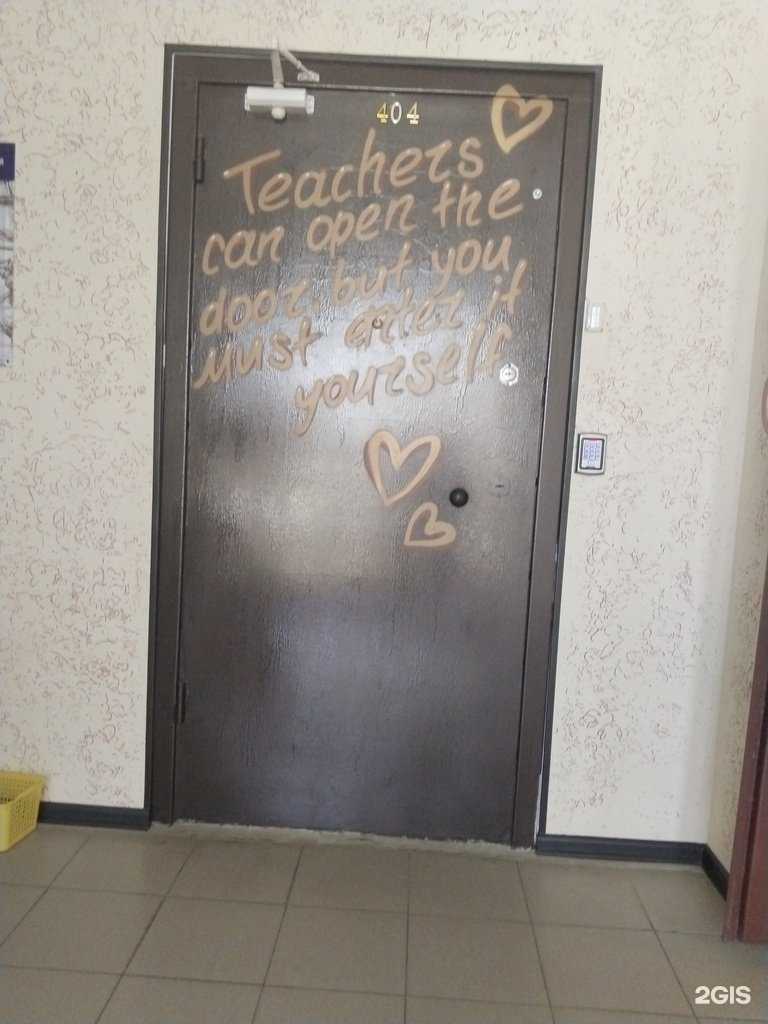 404
Teachers
can open the
door, but you
must enter it
yourself
2GIS